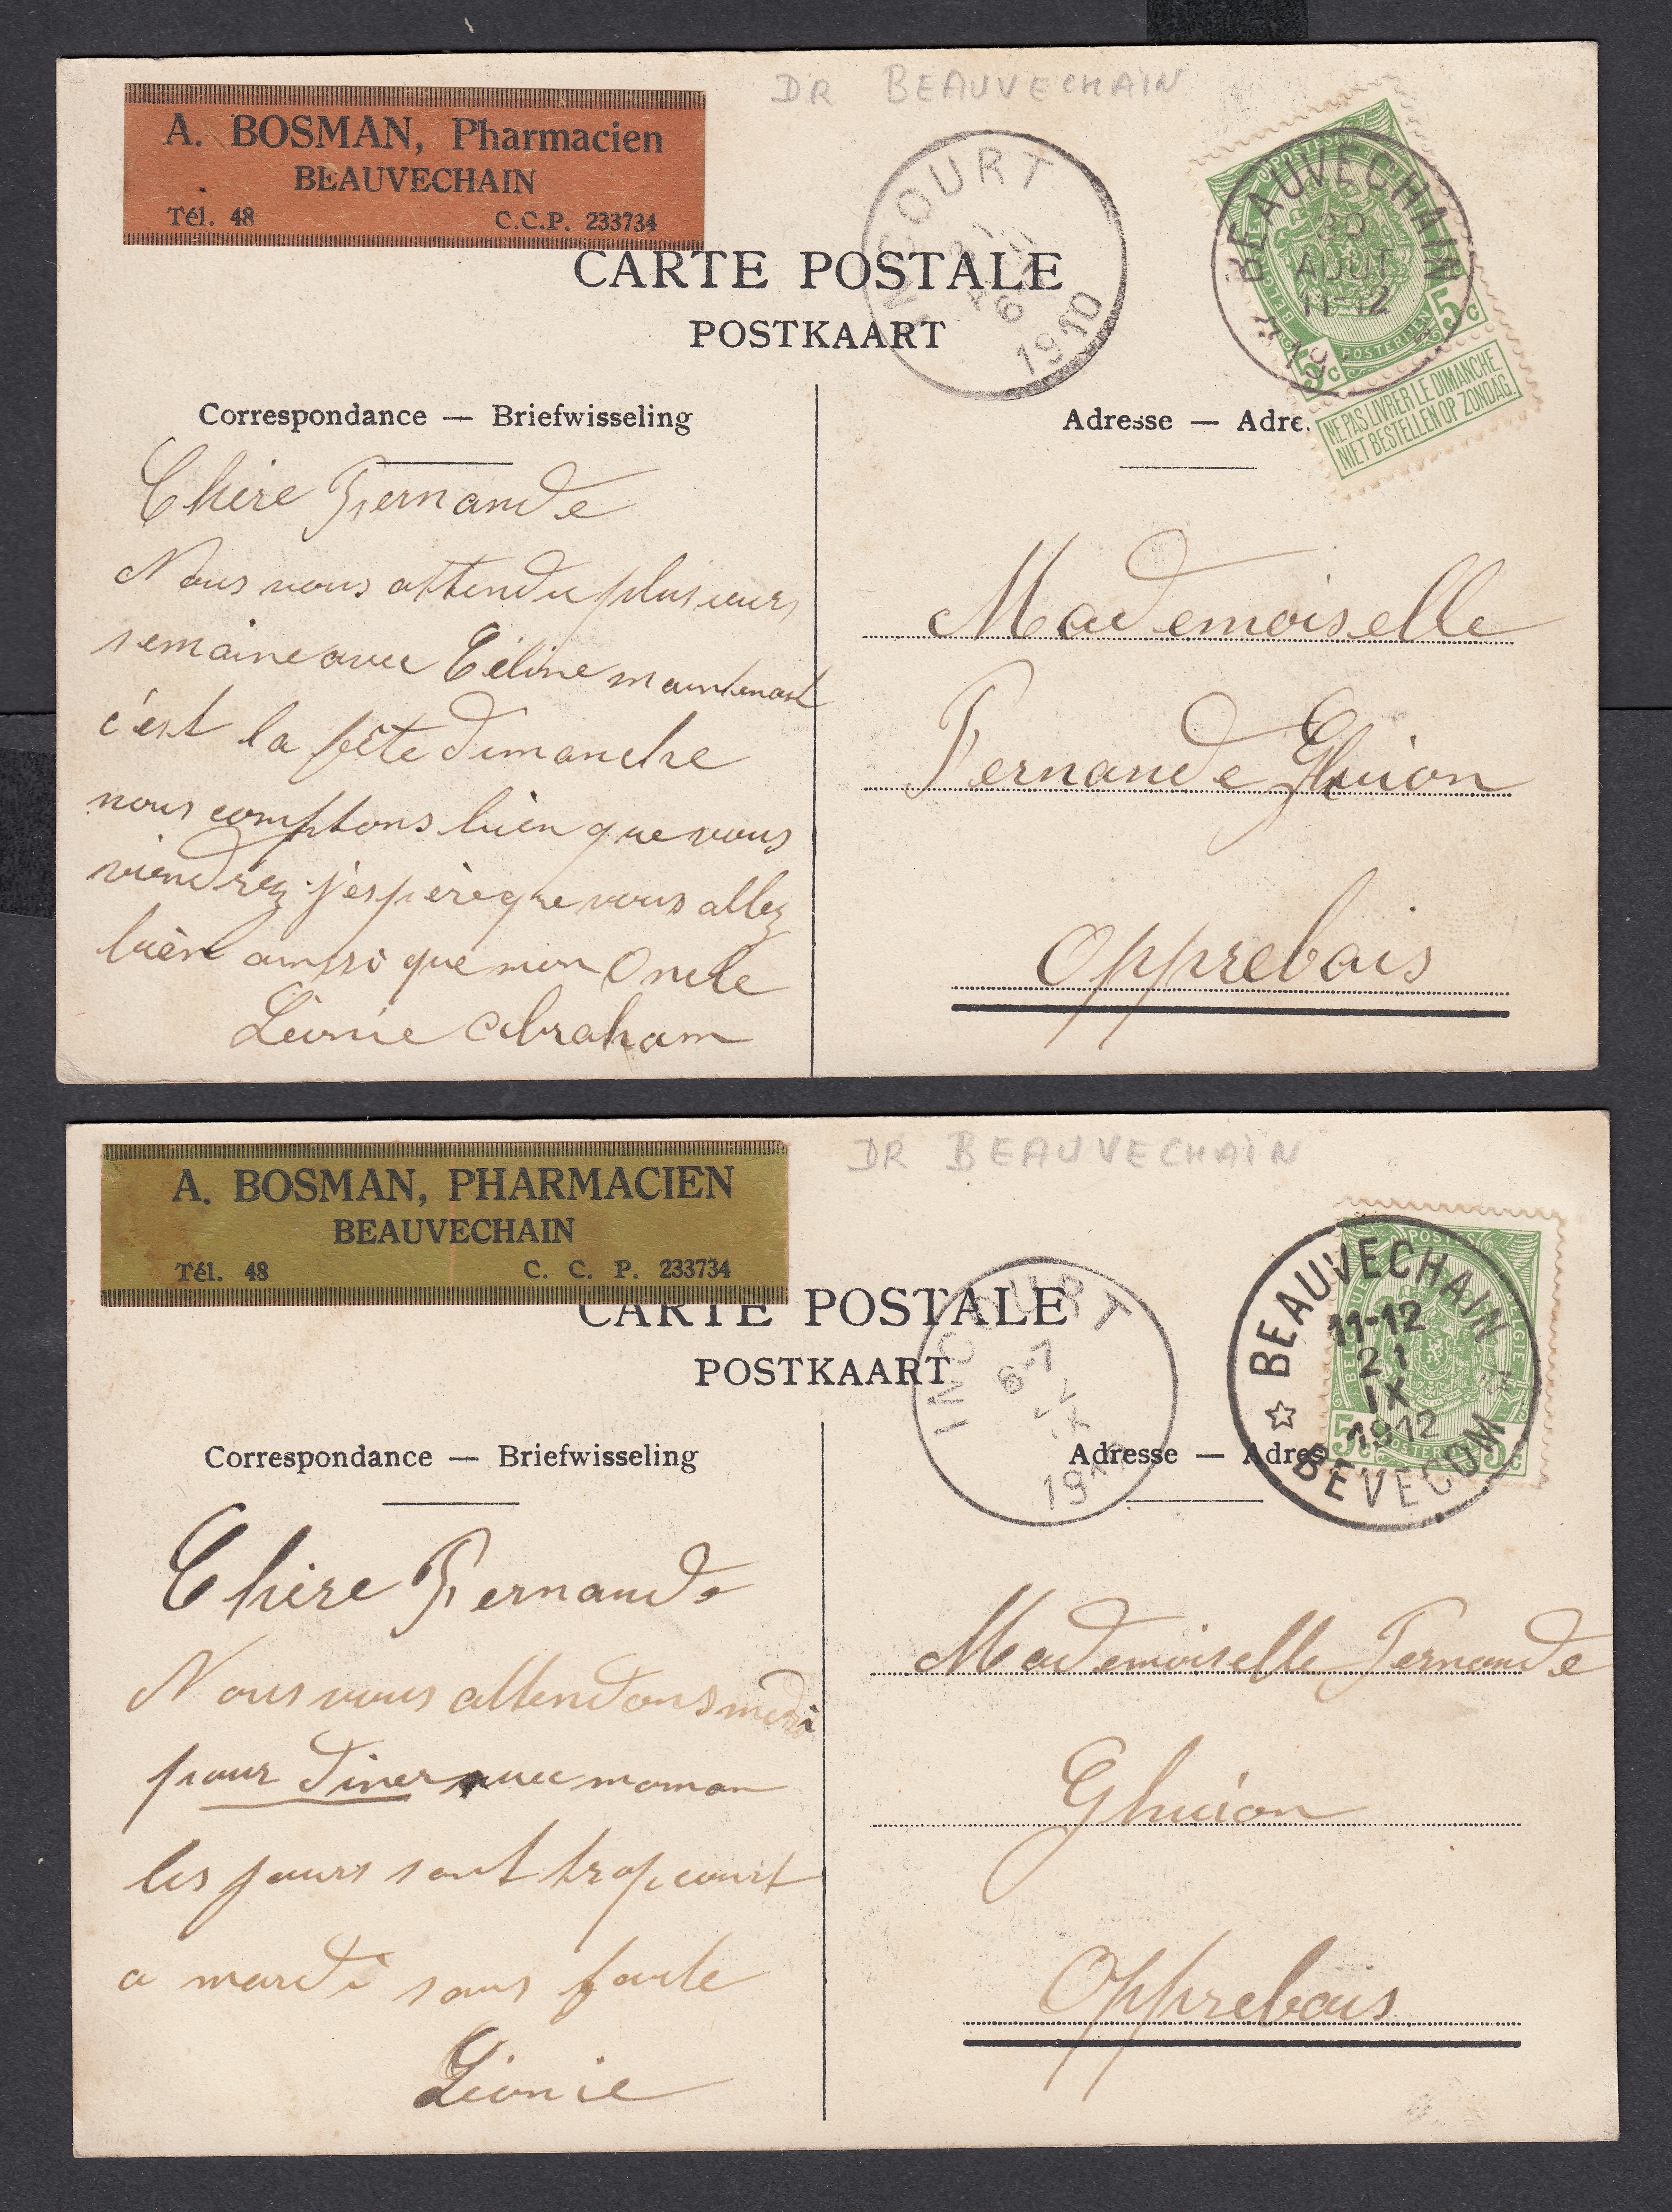 DR BEAUVECHAIN
A. BOSMAN, Pharmacien
BEAUVECHAIN
Tél. 48 C.C.P. 233734
INCOURT
1910
BEAUVECHAIN
AOUT
11-12
5c 5c
POSTERIJEN
NE PAS LIVRER LE DIMANCHE
NIET BESTELLEN OP ZONDAG.
CARTE POSTALE
POSTKAART
Correspondance — Briefwisseling
Adresse — Adre
Chère Fernande
Nous vous attendu plusieurs
semaine avec Céline maintenant
c'est la fête dimanche
nous comptons bien que vous
viendrez j'espère que vous allez
bien ainssi que mon Oncle
Léonie Abraham
Mademoiselle
Fernande Ghuion
Opprebais
DR BEAUVECHAIN
A. BOSMAN, PHARMACIEN
BEAUVECHAIN
Tél. 48 C. C. P. 233734
INCOURT
6-7
IX
BEAUVECHAIN
11-12
21
IX
1912
BEVECOM
CARTE POSTALE
POSTKAART
Correspondance — Briefwisseling
Adresse — Adres
Chère Fernande
Nous vous attendons
pour diner avec maman
les jours sont trop court
a mardi sans faute
Léonie
Mademoiselle Fernande
Ghuion
Opprebais